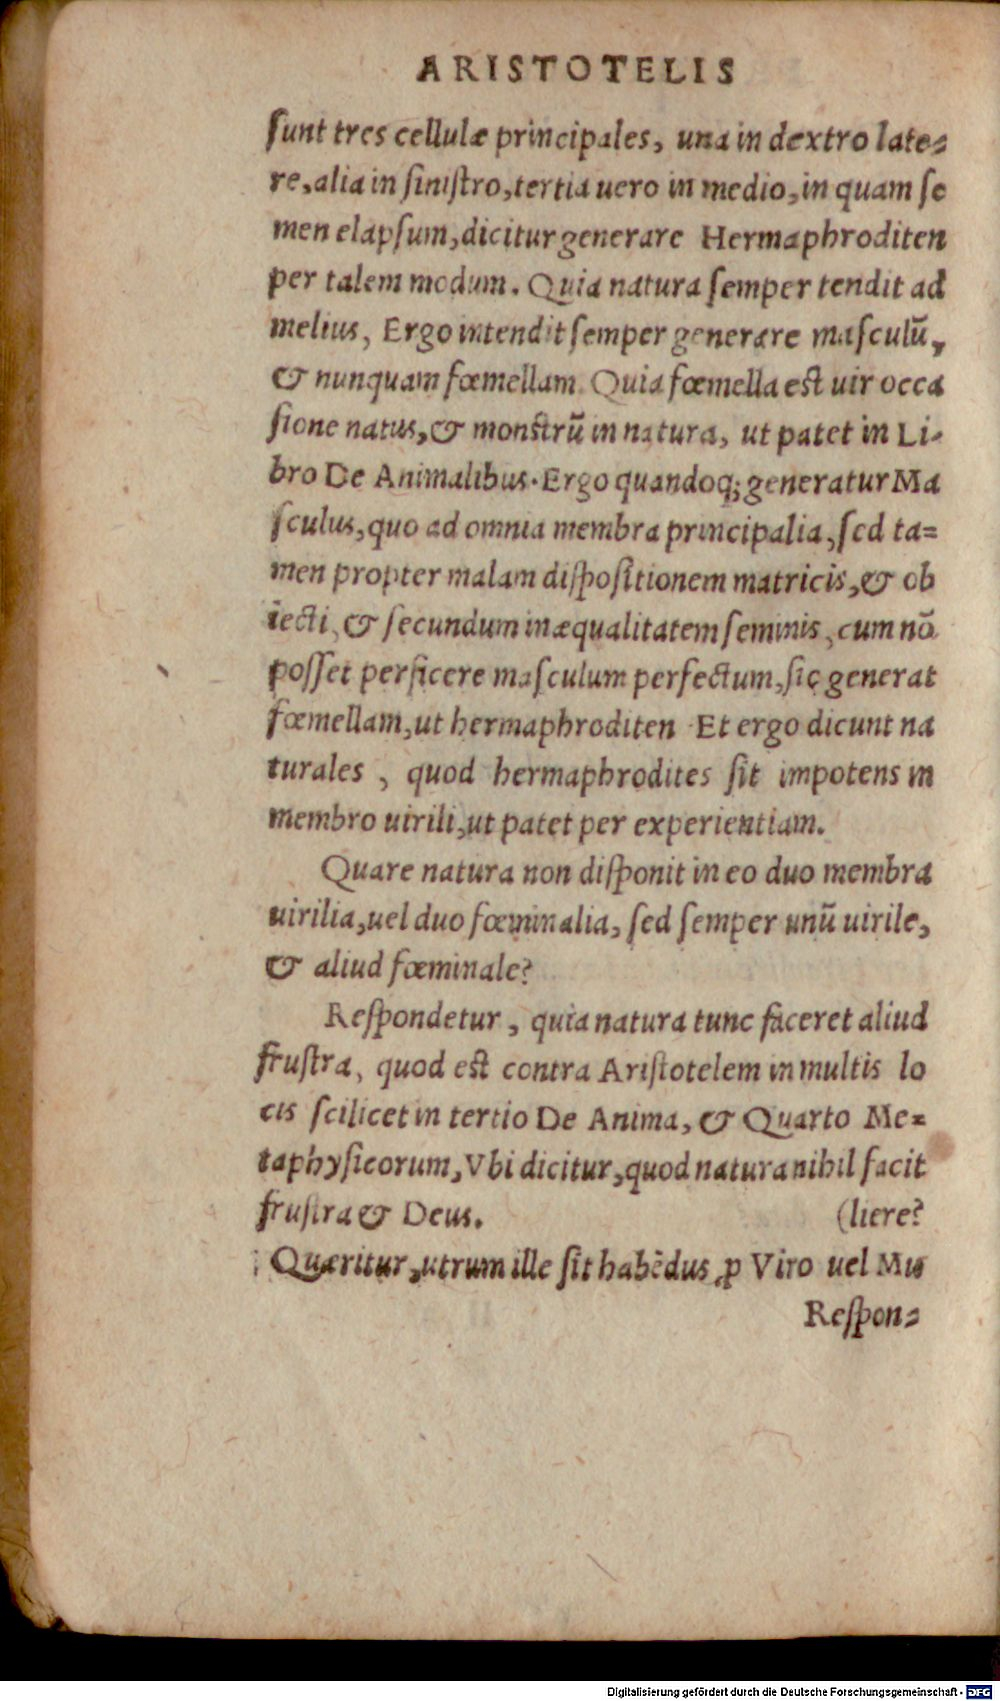 ARISTOTELIS
ſunt tres cellulæ principales, una in dextro late-
re, alia in ſiniſtro, tertia uero in medio, in quam ſe
men elapſum, dicitur generare Hermaphroditen
per talem modum. Quia natura ſemper tendit ad
melius, Ergo intendit ſemper generare maſculū,
& nunquam fœmellam. Quia fœmella est uir occa
ſione natus, & monstrū in natura, ut patet in Li-
bro De Animalibus. Ergo quandoq; generatur Ma
ſculus, quo ad omnia membra principalia, ſed ta=
men propter malam diſpoſitionem matricis, & ob
iecti, & ſecundum inæqualitatem ſeminis, cum nō
poſſet perficere maſculum perfectum, ſic generat
fœmellam, ut hermaphroditen Et ergo dicunt na
turales, quod hermaphrodites ſit impotens in
membro uirili, ut patet per experientiam.
Quare natura non diſponit in eo duo membra
uirilia, uel duo fœminalia, ſed ſemper unū uirile,
& aliud fœminale?
Reſpondetur, quia natura tunc faceret aliud
fruſtra, quod est contra Ariſtotelem in multis lo
cis ſcilicet in tertio De Anima, & Quarto Me-
taphyſicorum, Vbi dicitur, quod natura nihil facit
fruſtra & Deus. (liere?
Quæritur, utrum ille ſit habēdus ꝓ Viro uel Mu
Reſpon-
Digitalisierung gefördert durch die Deutsche Forschungsgemeinschaft - DFG